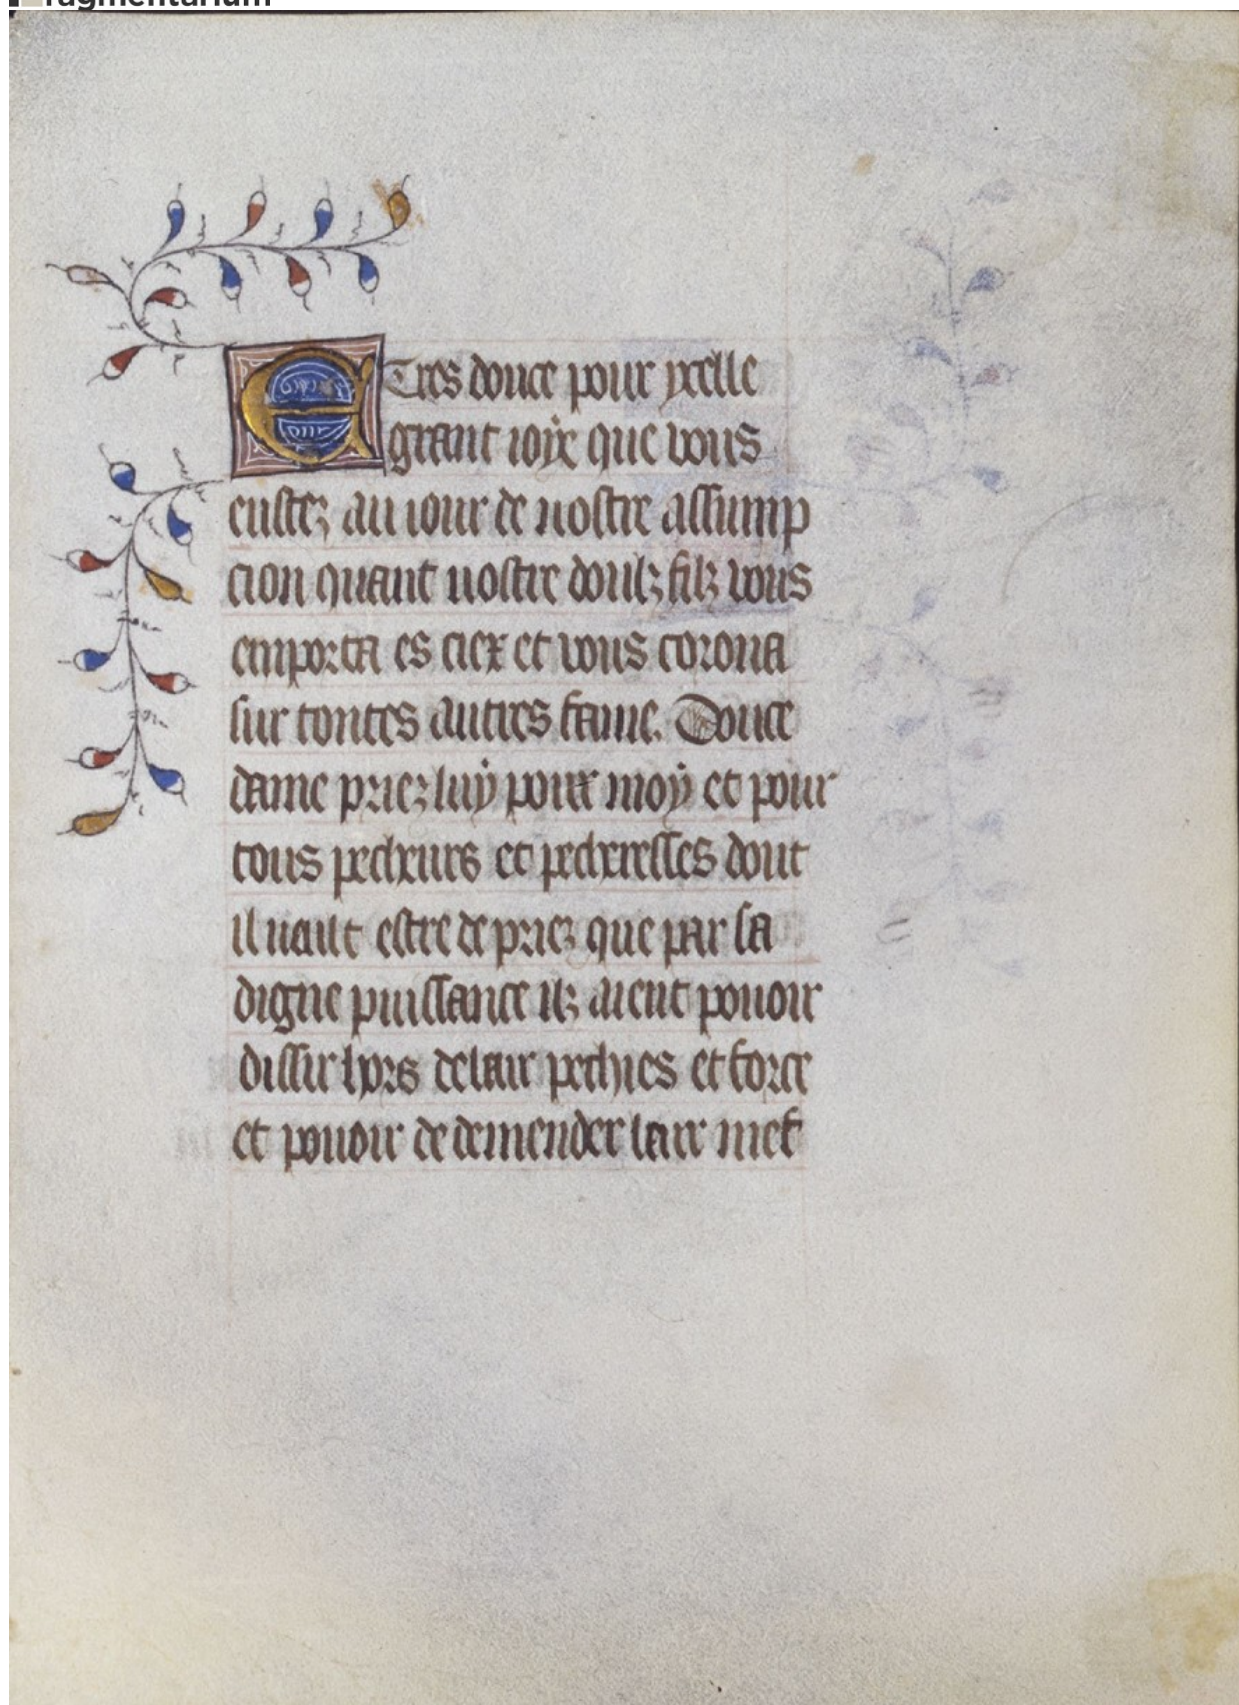 ragmentarium
E Tres douce pour ycelle
grant ioye que vous
eustez au iour de nostre assump
cion quant uostre doulz filz vous
emporta es ciex et vous corona
sur toutes autres fame. Douce
dame priez luy pour moy et pour
tous pecheurs et pecheresses dont
il ueult estre de priez que par sa
digne puissance ilz aient pouoir
dissir hors de lair pechies et force
et pouoir de demender leur mef